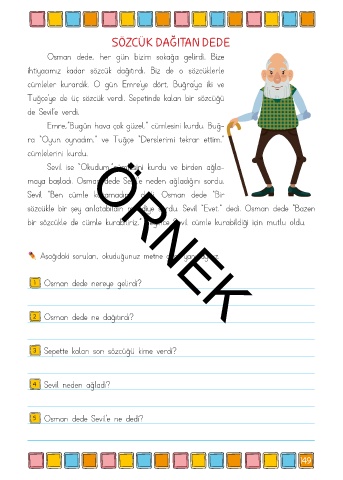 SÖZCÜK DAĞITAN DEDE
Osman dede, her gün bizim sokağa gelirdi. Bize
ihtiyacımız kadar sözcük dağıtırdı. Biz de o sözcüklerle
cümleler kurardık. O gün Emre'ye dört, Buğra'ya iki ve
Tuğçe'ye de üç sözcük verdi. Sepetinde kalan bir sözcüğü
de Sevil'e verdi.
Emre,"Bugün hava çok güzel." cümlesini kurdu. Buğ-
ra "Oyun oynadım." ve Tuğçe "Derslerimi tekrar ettim."
cümlelerini kurdu.
Sevil ise "Okudum." cümlesini kurdu ve birden ağla-
maya başladı. Osman dede Sevil'e neden ağladığını sordu.
Sevil "Ben cümle dedi. Osman dede "Bir
sözcükle bir şey anlatabilir diye sordu. Sevil "Evet." dedi. Osman dede "Bazen
bir sözcükle de cümle kurabiliriz." Sevil cümle kurabildiği için mutlu oldu.
Aşağıdaki soruları, okuduğunuz metne göre yanıtlayınız.
1. Osman dede nereye gelirdi?
2. Osman dede ne dağıtırdı?
3. Sepette kalan son sözcüğü kime verdi?
4. Sevil neden ağladı?
5. Osman dede Sevil'e ne dedi?
ÖRNEK
149